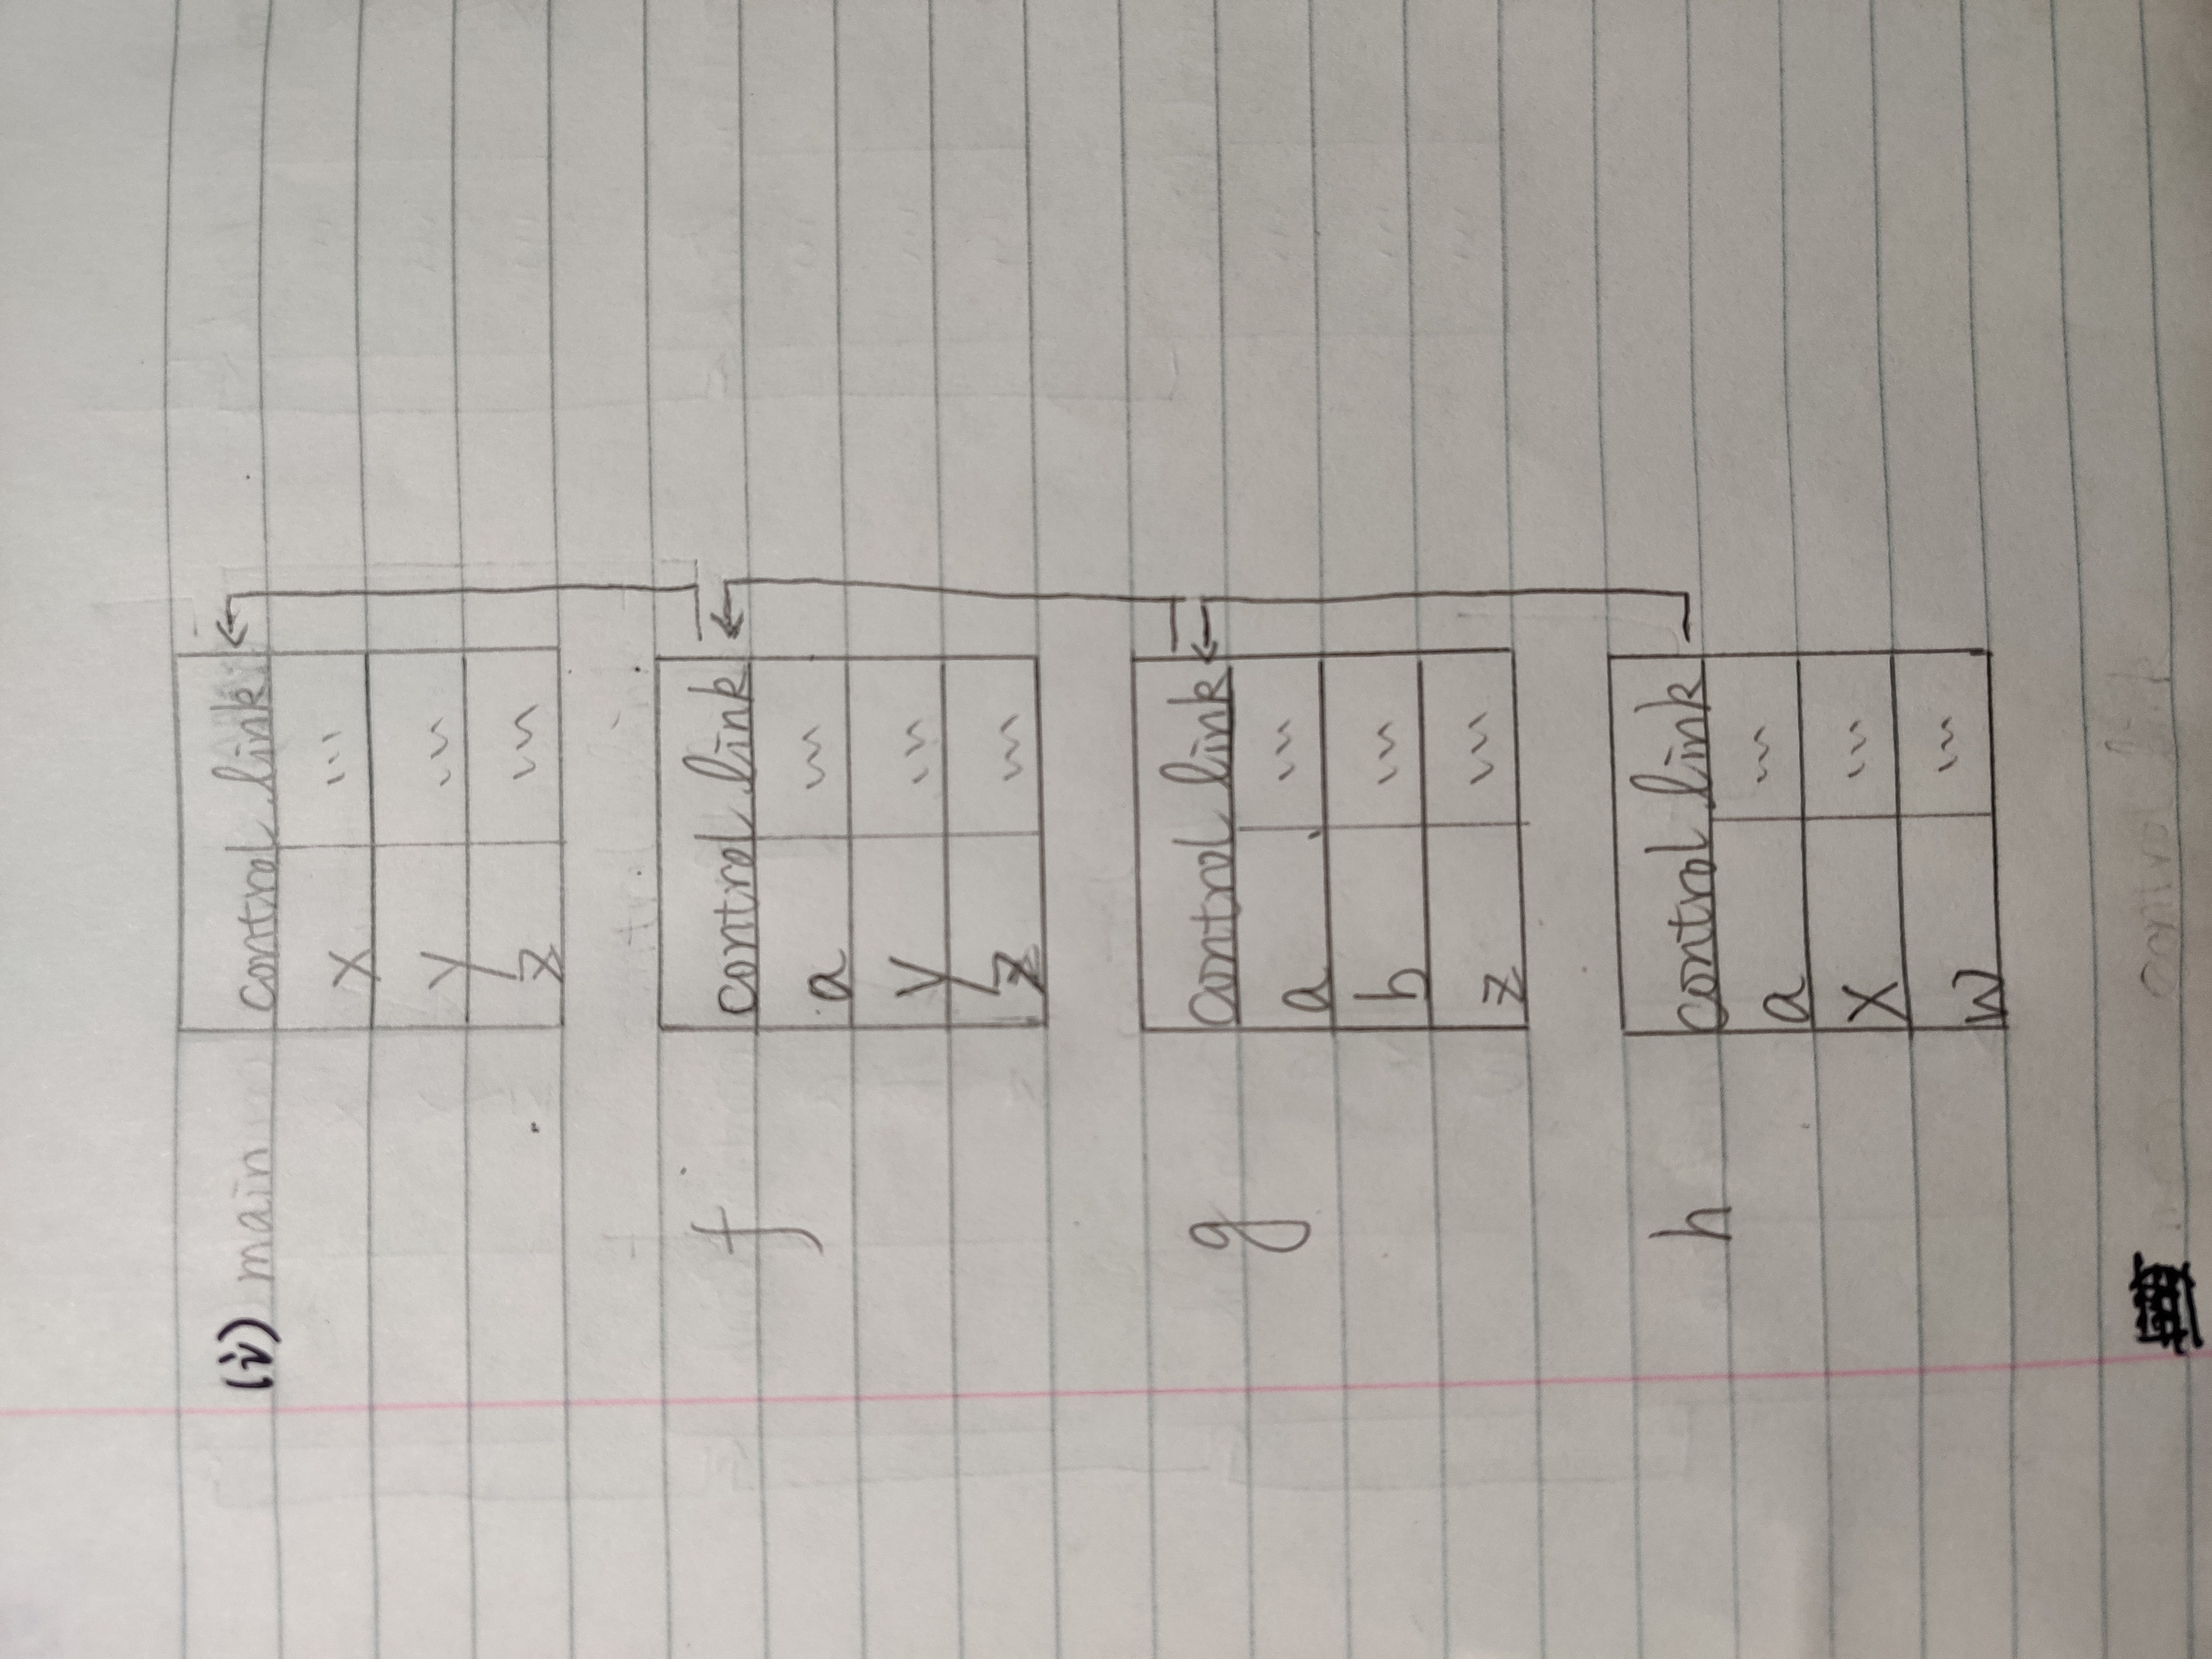 (i) main control link
x ...
y ...
z ...
f control link
a ...
y ...
z ...
g control link
a ...
b ...
z ...
h control link
a ...
x ...
w ...
control link